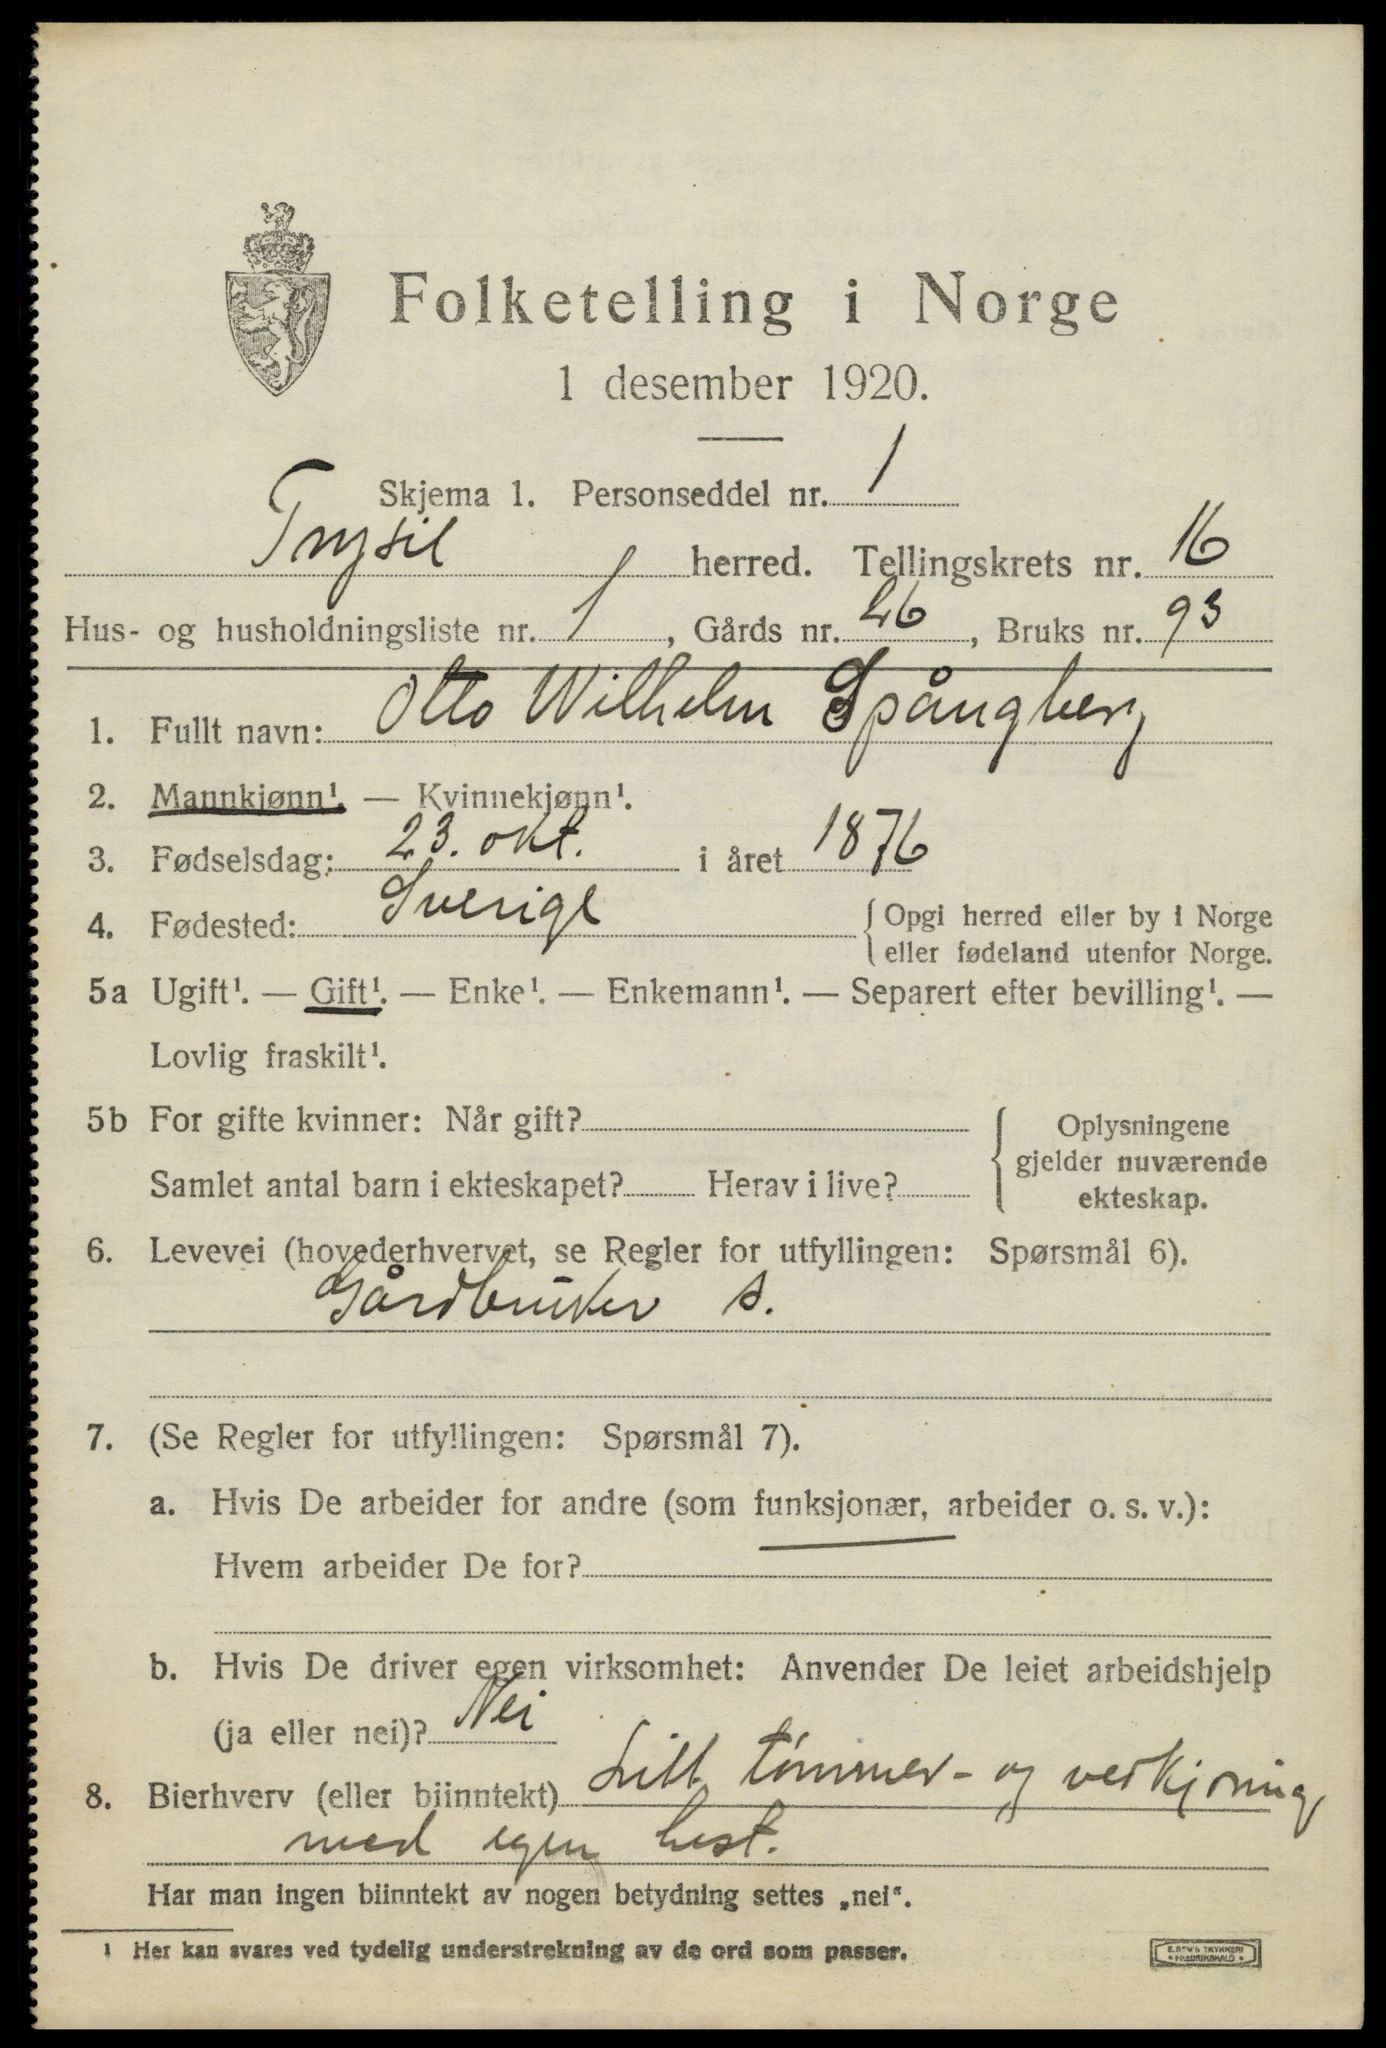 Folketelling i Norge
1 desember 1920.
Skjema 1. Personseddel nr. 1
Trysil herred. Tellingskrets nr. 16
Hus- og husholdningsliste nr. 1, Gårds nr. 26, Bruks nr. 93
1. Fullt navn: Otto Wilhelm Spångberg
2. Mannkjønn¹. — Kvinnekjønn¹.
3. Fødselsdag: 23. okt. i året 1876
4. Fødested: Sverige { Opgi herred eller by i Norge
eller fødeland utenfor Norge.
5a Ugift¹. — Gift¹. — Enke¹. — Enkemann¹. — Separert efter bevilling¹. —
Lovlig fraskilt¹.
5b For gifte kvinner: Når gift?
Samlet antal barn i ekteskapet? Herav i live?
Oplysningene
gjelder nuværende
ekteskap.
6. Levevei (hovederhvervet, se Regler for utfyllingen: Spørsmål 6).
Gårdbruker s.
7. (Se Regler for utfyllingen: Spørsmål 7).
a. Hvis De arbeider for andre (som funksjonær, arbeider o. s. v.):
Hvem arbeider De for?
b. Hvis De driver egen virksomhet: Anvender De leiet arbeidshjelp
(ja eller nei)? Nei
8. Bierhverv (eller biinntekt) Litt tømmer- og vedkjøring
med egen hest.
Har man ingen biinntekt av nogen betydning settes „nei“.
1 Her kan svares ved tydelig understrekning av de ord som passer.
E. SEM'S TRYKKERI
FREDRIKSHALD